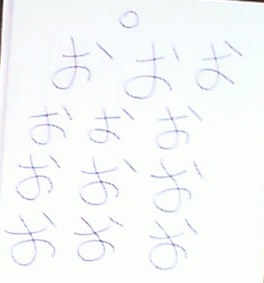 o
お お お
お お お
お お お
お お お